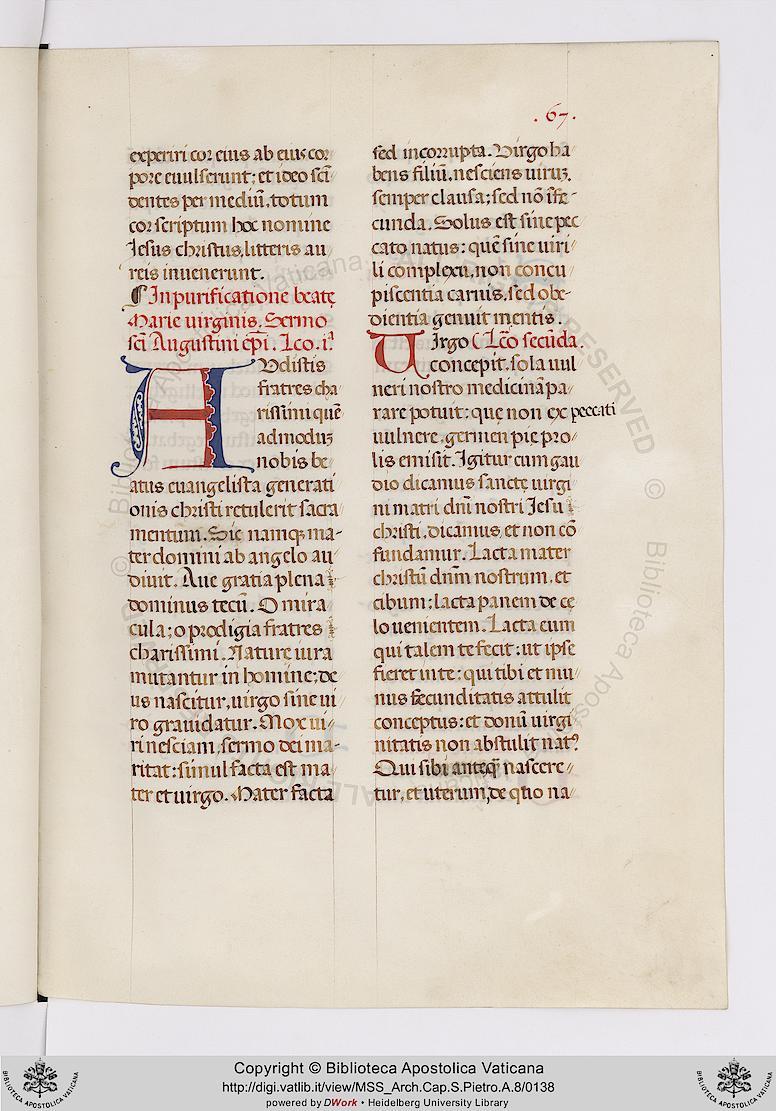 .67.
experiri cor eius ab eius cor
pore euulserunt; et ideo scī
dentes per mediū, totum
cor scriptum hoc nomine
Iesus christus, litteris au
reis inuenerunt.
¶ In purificatione beatę
Marie uirginis. Sermo
sċi Augustini ep̄i. Lco. i.ª
AUdistis
fratres cha
rissimi quē
admoduꝫ
nobis be
atus euangelista generati
onis christi retulerit sacra
mentum. Sic namqꝫ ma
ter domini ab angelo au
diuit. Aue gratia plena
dominus tecū. O mira
cula; o prodigia fratres
charissimi. Nature iura
mutantur in homine; de
us nascitur, uirgo sine ui
ro grauidatur. Mox ui
ri nesciam, sermo dei ma
ritat: simul facta est ma
ter et uirgo. Mater facta
sed incorrupta. Virgo ha
bens filiū, nesciens uiruꝫ.
semper clausa; sed nō īfe
cunda. Solus est sine pec
cato natus: quē sine uiri
li complexu, non concu
piscentia carnis, sed obe
dientia genuit mentis.
UIrgo ¶ Lc̄o secūda.
concepit. sola uul
neri nostro medicinā pa
rare potuit: quę non ex peccati
uulnere, germen pię pro
lis emisit. Igitur cum gau
dio dicamus sanctę uirgi
ni matri dn̄i nostri Iesu
christi. dicamus, et non cō
fundamur. Lacta mater
christū dn̄m nostrum, et
cibum: lacta panem de cę
lo uenientem. Lacta eum
qui talem te fecit: ut ipse
fieret in te: qui tibi et mu
nus fęcunditatis attulit
conceptus: et donū uirgi
nitatis non abstulit natꝰ.
Qui sibi anteq̄ nascere
tur, et uterum, de quo na
Copyright © Biblioteca Apostolica Vaticana
http://digi.vatlib.it/view/MSS_Arch.Cap.S.Pietro.A.8/0138
powered by DWork • Heidelberg University Library
BIBLIOTECA APOSTOLICA VATICANA
BIBLIOTECA APOSTOLICA VATICANA